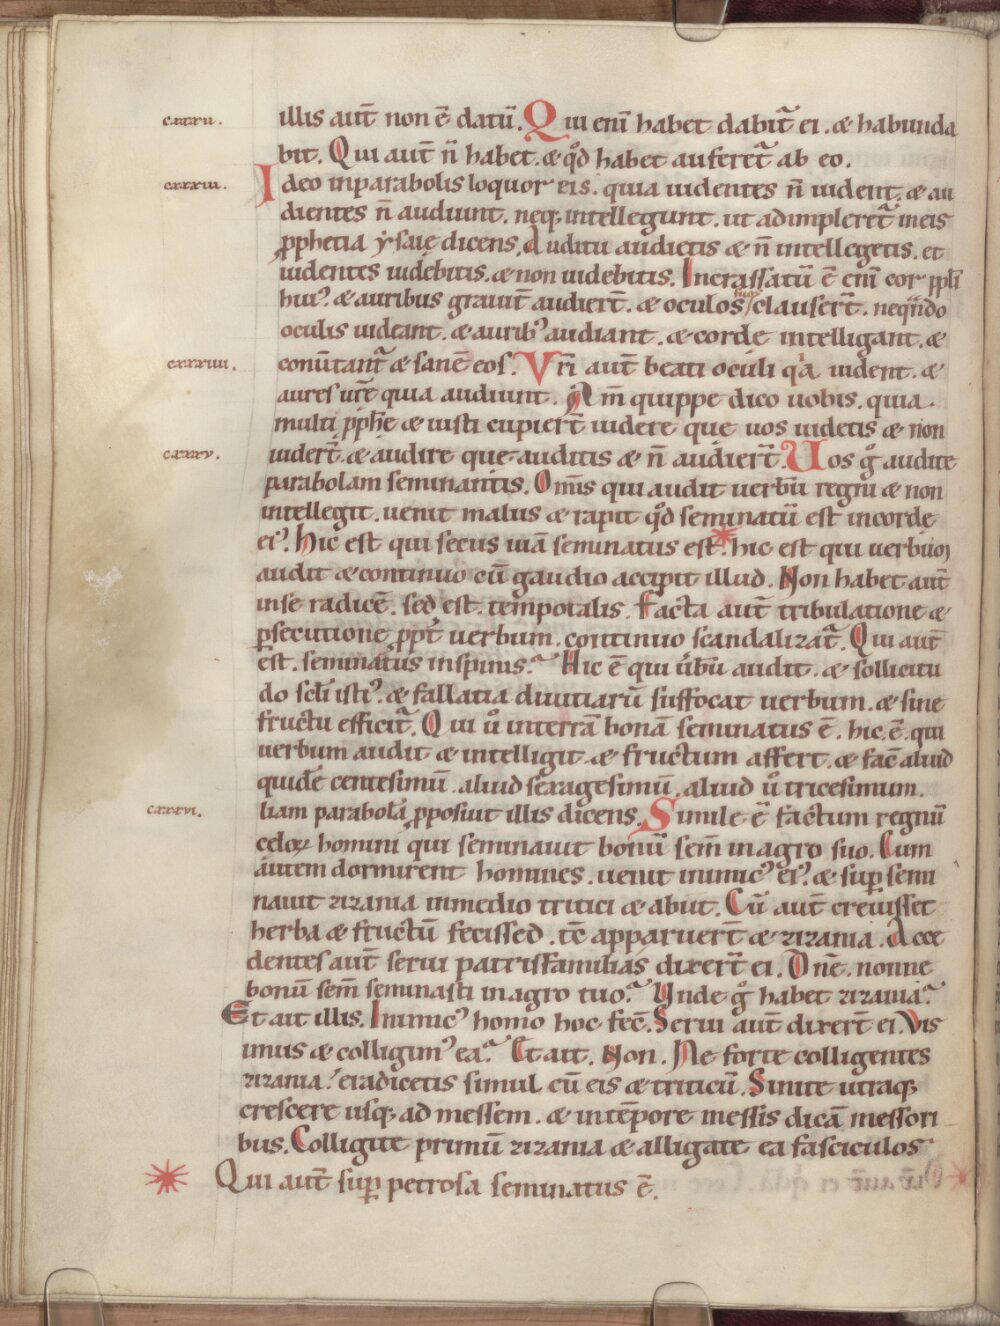 cxxxii.
illis aut̄ non ē datū. Qui eni̅ habet dabit᷑ ei. & habunda
bit. Qui aut̄ n̄ habet. & qd̊ habet auferet᷑ ab eo.
cxxxiii.
Ideo inparabolis loquor eis. quia uidentes n̄ uident. & au
dientes n̄ audiunt. neq; intellegunt. ut adimpleret᷑ ineis
ꝓphetia ẏsaię dicens. Auditu audietis & n̄ intellegetis. et
uidentes uidebitis. & non uidebitis. Incrassatū ē eni̅ cor ppłi
hui᾿. & auribus grauit̄ audier̄t. & oculos suos clauser̄t. neqn̄do
oculis uideant. & aurib᾿ audiant. & corde intelligant. &
cxxxiiii.
conu̅tant᷑ & sanē eos. Vr̄i aut̄ beati oculi qͣa uident. &
aures ur̄e quia audiunt. Am̄ quippe dico uobis. quia
multi ꝓph̄e & iusti cupier̄t uidere que uos uidetis & non
cxxxv.
uider̄t. & audire que auditis & n̄ audier̄t. Uos g̊ audite
parabolam seminantis. Om̄is qui audit uerbū regni & non
intellegit. uenit malus & rapit qd̊ seminatū est incorde
ei᾿. Hic est qui secus uiā seminatus est. hic est qui uerbum
audit & continuo cū gaudio accipit illud. Non habet aut̄
inse radicē. sed est temporalis. Facta aut̄ tribulatione &
ꝑsecutione ꝓpt̄ uerbum. continuo scandalizat᷑. Qui aut̄
est. seminatus inspinis. Hic ē qui u̅bū audit. & sollicitu
do scl̄i isti᾿. & fallatia diuitiarū suffocat uerbum. & sine
fructu efficit᷑. Qui ů interrā bonā seminatus ē. hic. ē. qui
uerbum audit & intelligit. & fructum affert. & fac̄ aliud
quidē centesimū. aliud sexagesimū. aliud ů tricesimum.
cxxxvi.
liam parabolā ꝓposuit illis dicens. Simile ē factum regnū
celoꝝ homini qui seminauit bonū sem̄ inagro suo. Cum
autem dormirent homines. uenit inimic᾿ ei᾿. & suꝑ semi
nauit zizania inmedio tritici & abiit. Cū aut̄ creuisset
herba & fructū fecissed. tc̄ apparuer̄t & zizania. Acce
dentes aut̄ serui patrisfamilias dixer̄t ei. Dn̄e. nonne
bonū sem̄ seminasti inagro tuo. Unde g̊ habet zizania.
Et ait illis. Inimic᾿ homo hoc fec̄. Serui aut̄ dixer̄t ei. Vis
imus & colligim᾿ ea. Et ait. Non. Ne forte colligentes
zizania. eradicetis simul cū eis & triticū. Sinite utraq;
crescere usq; ad messem. & intēpore messis dicā messori
bus. Colligite primū zizania & alligate ea fasciculos
Qui aut̄ suꝑ petrosa seminatus ē.